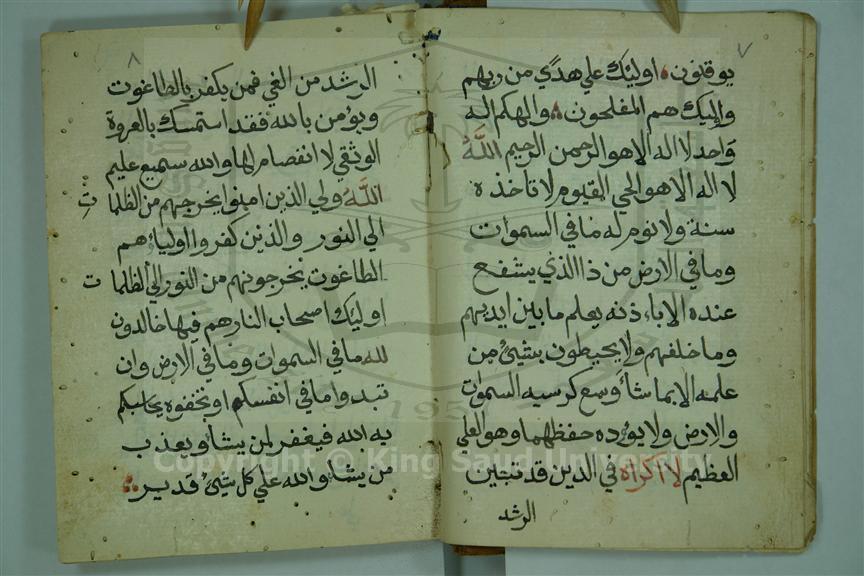 ٧
يوقنون اوليك علي هدي من ربهم
واليك هم المفلحون والهكم اله
واحد لا اله الا هو الرحمن الرحيم الله
لا اله الا هو الحي القيوم لا تاخذه
سنة ولا نوم له ما في السموات
وما في الارض من ذا الذي يشفع
عنده الا باءذنه يعلم ما بين ايديهم
وما خلفهم ولا يحيطون بشيئ من
علمه الا بما شأ وسع كرسيه السموات
والارض ولا يؤده حفظهما وهو العلي
العظيم لا اكراه في الدين قد تبين
الرشد
٨
الرشد من الغي فمن يكفر بالطاغوت
ويؤمن بالله فقد استمسك بالعروة
الوثقي لا انفصام لها والله سميع عليم
الله ولي الذين امنوا يخرجهم من الظلمات
الي النور والذين كفروا اولياءهم
الطاغوت يخرجونهم من النور الي الظلمات
اوليك اصحاب النار هم فيها خالدون
لله ما في السموات وما في الارض وان
تبدوا ما في انفسكم او تخفوه يحاسبكم
به الله فيغفر لمن يشا ويعذب
من يشا والله علي كل شيئ قدير
1957
Copyright © King Saud University